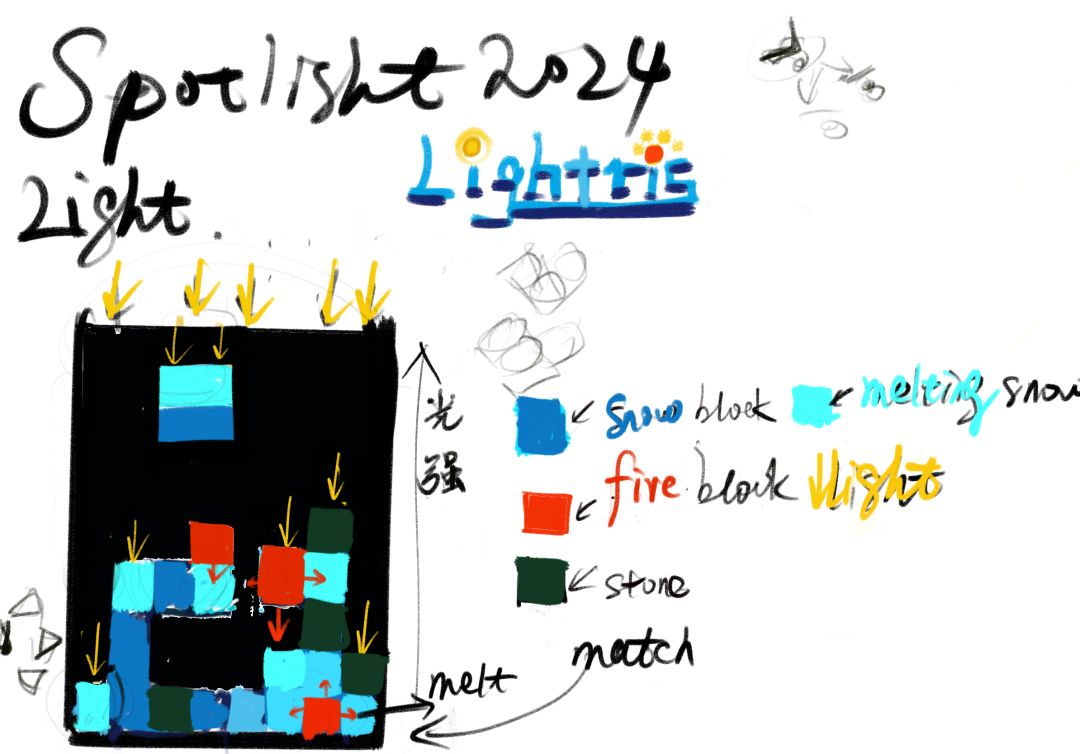 Spotlight 2024
Lightris
Light.
光
强
snow block
melting snow
fire block
light
stone
match
melt